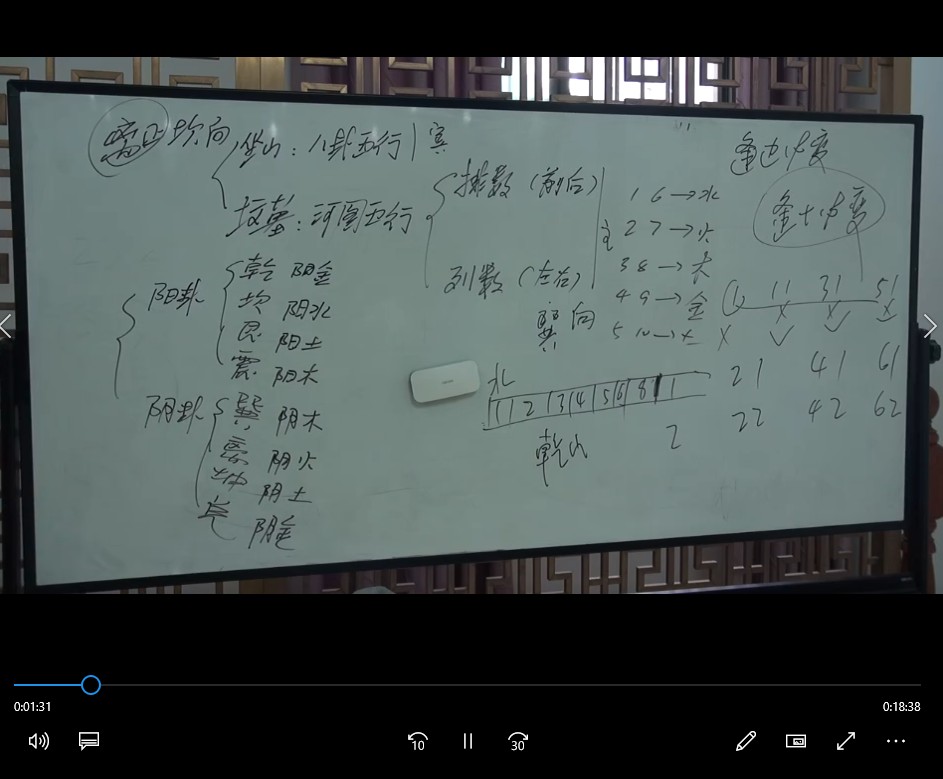 离山坎向
坐山：八卦五行 | 宾
坟墓：河图五行
排数（前后）
列数（左右）
主
1 6 → 水
2 7 → 火
3 8 → 木
4 9 → 金
5 10 → 土
逢过必变
逢十必变
1 11 31 51
X X X X
21 41 61
22 42 62
阳卦
乾 阳金
坎 阳水
艮 阳土
震 阳木
阴卦
巽 阴木
离 阴火
坤 阴土
兑 阴金
巽向
北
1 2 3 4 5 6 8 1
乾山
2
0:01:31
0:18:38
10
30